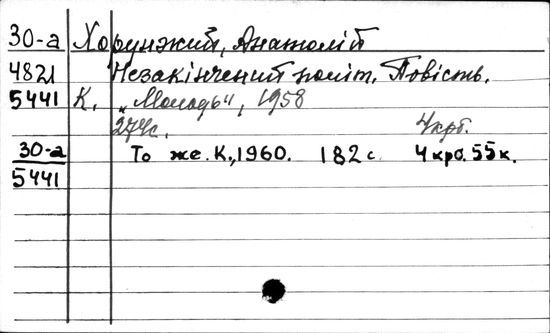 30-а Хорунжий, Анатолій
4821 Незакінчений політ. Повість.
5441 К. „Молодь", 1958
274с. 4крб.
30-а То же. К., 1960. 182 с. 4 крб. 55 к.
5441